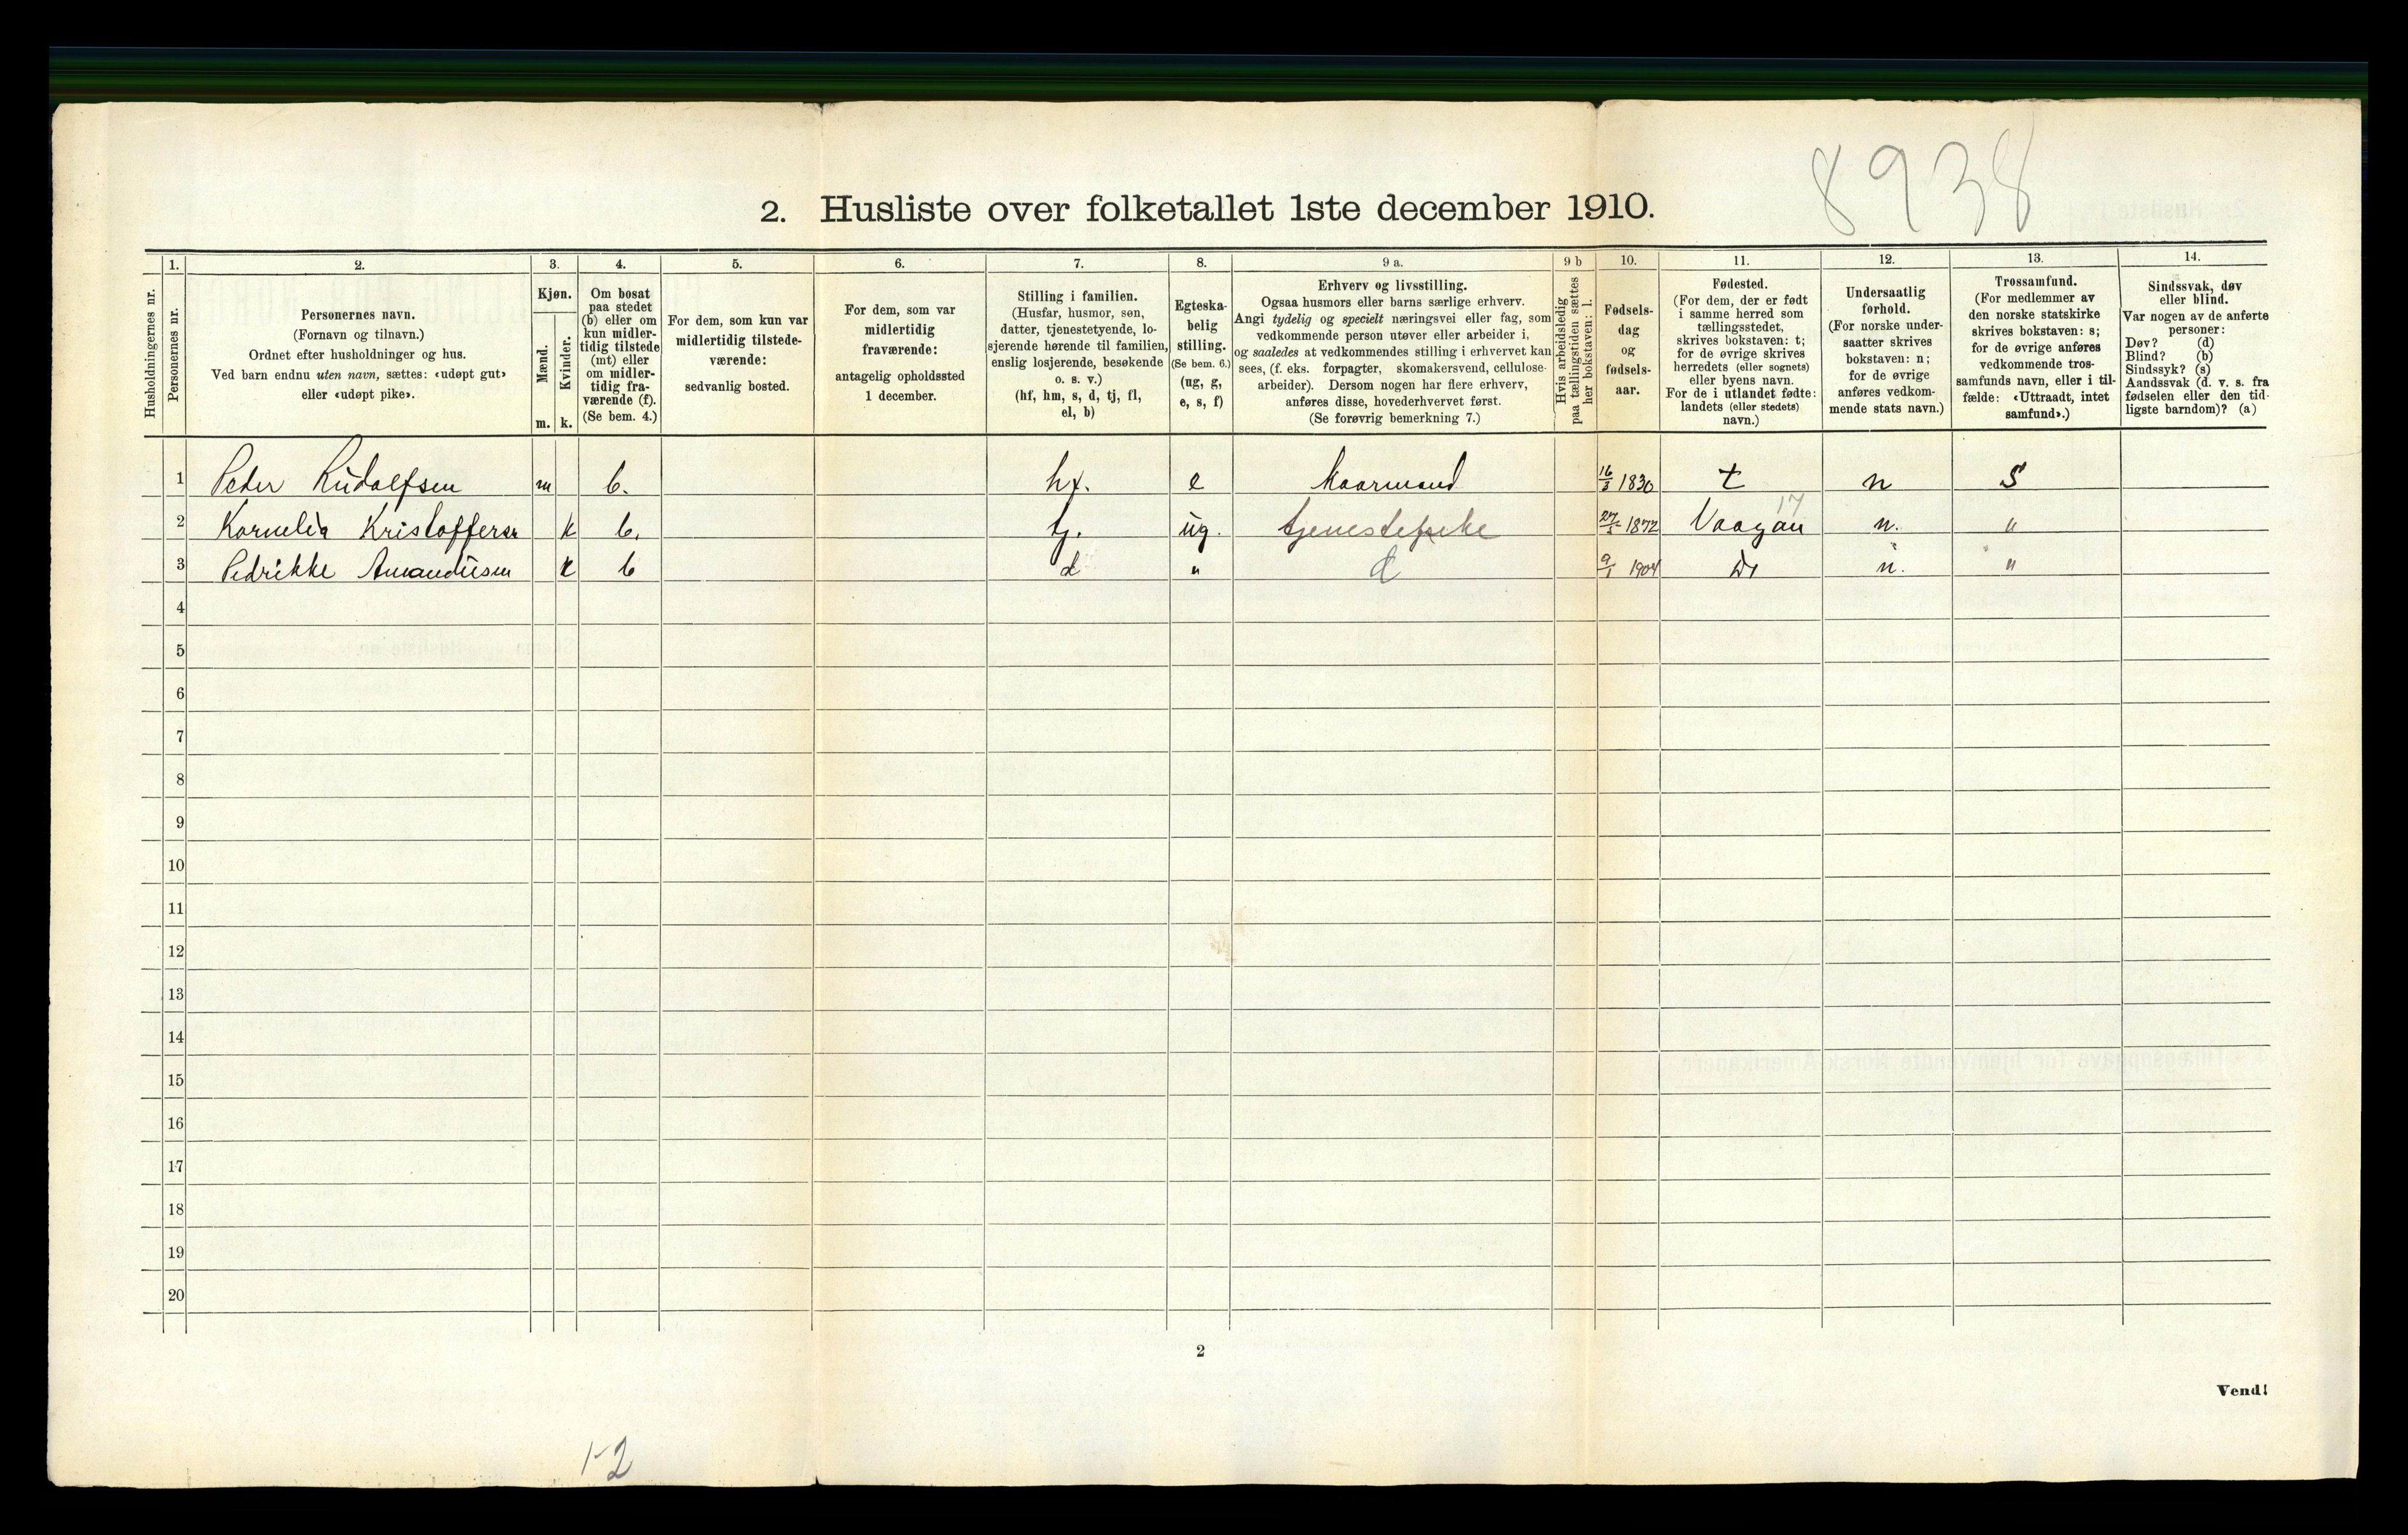 8938
2. Husliste over folketallet 1ste december 1910.
Husholdningernes nr.
1.
Personernes nr.
2.
Personernes navn.
(Fornavn og tilnavn.)
Ordnet efter husholdninger og hus.
Ved barn endnu uten navn, sættes: «udøpt gut»
eller «udøpt pike».
3.
Kjøn.
Mænd.
Kvinder.
m. k.
4.
Om bosat
paa stedet
(b) eller om
kun midler-
tidig tilstede
(mt) eller
om midler-
tidig fra-
værende (f).
(Se bem. 4.)
5.
For dem, som kun var
midlertidig tilstede-
værende:
sedvanlig bosted.
6.
For dem, som var
midlertidig
fraværende:
antagelig opholdssted
1 december.
7.
Stilling i familien.
(Husfar, husmor, søn,
datter, tjenestetyende, lo-
sjerende hørende til familien,
enslig losjerende, besøkende
o. s. v.)
(hf, hm, s, d, tj, fl,
el, b)
8.
Egteska-
belig
stilling.
(Se bem. 6.)
(ug, g,
e, s, f)
9 a.
Erhverv og livsstilling.
Ogsaa husmors eller barns særlige erhverv.
Angi tydelig og specielt næringsvei eller fag, som
vedkommende person utøver eller arbeider i,
og saaledes at vedkommendes stilling i erhvervet kan
sees, (f. eks. forpagter, skomakersvend, cellulose-
arbeider). Dersom nogen har flere erhverv,
anføres disse, hovederhvervet først.
(Se forøvrig bemerkning 7.)
9 b
Hvis arbeidsledig
paa tællingstiden sættes
her bokstaven: l.
10.
Fødsels-
dag
og
fødsels-
aar.
11.
Fødested.
(For dem, der er født
i samme herred som
tællingsstedet,
skrives bokstaven: t;
for de øvrige skrives
herredets (eller sognets)
eller byens navn.
For de i utlandet fødte:
landets (eller stedets)
navn.)
12.
Undersaatlig
forhold.
(For norske under-
saatter skrives
bokstaven: n;
for de øvrige
anføres vedkom-
mende stats navn.)
13.
Trossamfund.
(For medlemmer av
den norske statskirke
skrives bokstaven: s;
for de øvrige anføres
vedkommende tros-
samfunds navn, eller i til-
fælde: «Uttraadt, intet
samfund».)
14.
Sindssvak, døv
eller blind.
Var nogen av de anførte
personer:
Døv? (d)
Blind? (b)
Sindssyk? (s)
Aandssvak (d. v. s. fra
fødselen eller den tid-
ligste barndom)? (a)
1 Peder Rudolfsen m b. hf. e Kaarmand 16/3 1830 t n S
17
2 Kornelia Kristoffersn k b. tj. ug. tjenestepike 27/5 1872 Vaagan n. "
3 Pedrikke Amandusen k b d " d 9/1 1904 n. "
4
5
6
7
8
9
10
11
12
13
14
15
16
17
18
19
20
2
Vend!
1-2